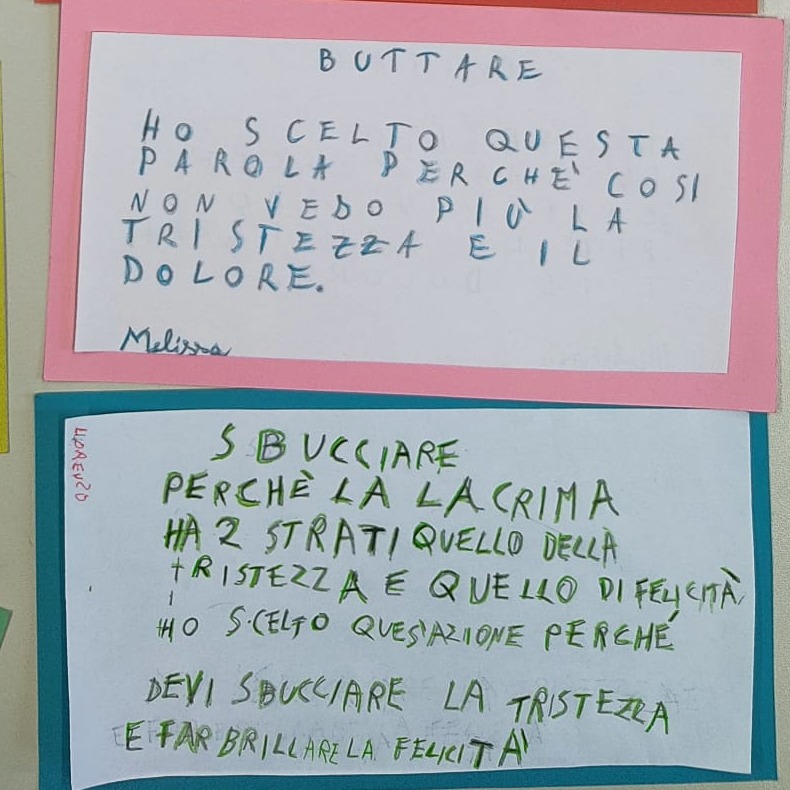 BUTTARE
HO SCELTO QUESTA
PAROLA PERCHÈ COSI
NON VEDO PIÙ LA
TRISTEZZA E IL
DOLORE.
Melissa
LORENZO
SBUCCIARE
PERCHÈ LA LACRIMA
HA 2 STRATI QUELLO DELLA
tRISTEZZA E QUELLO DI FELICITÀ
HO SCELTO QUES'AZIONE PERCHÉ
DEVI SBUCCIARE LA TRISTEZZA
E FAR BRILLARE LA FELICITÀ